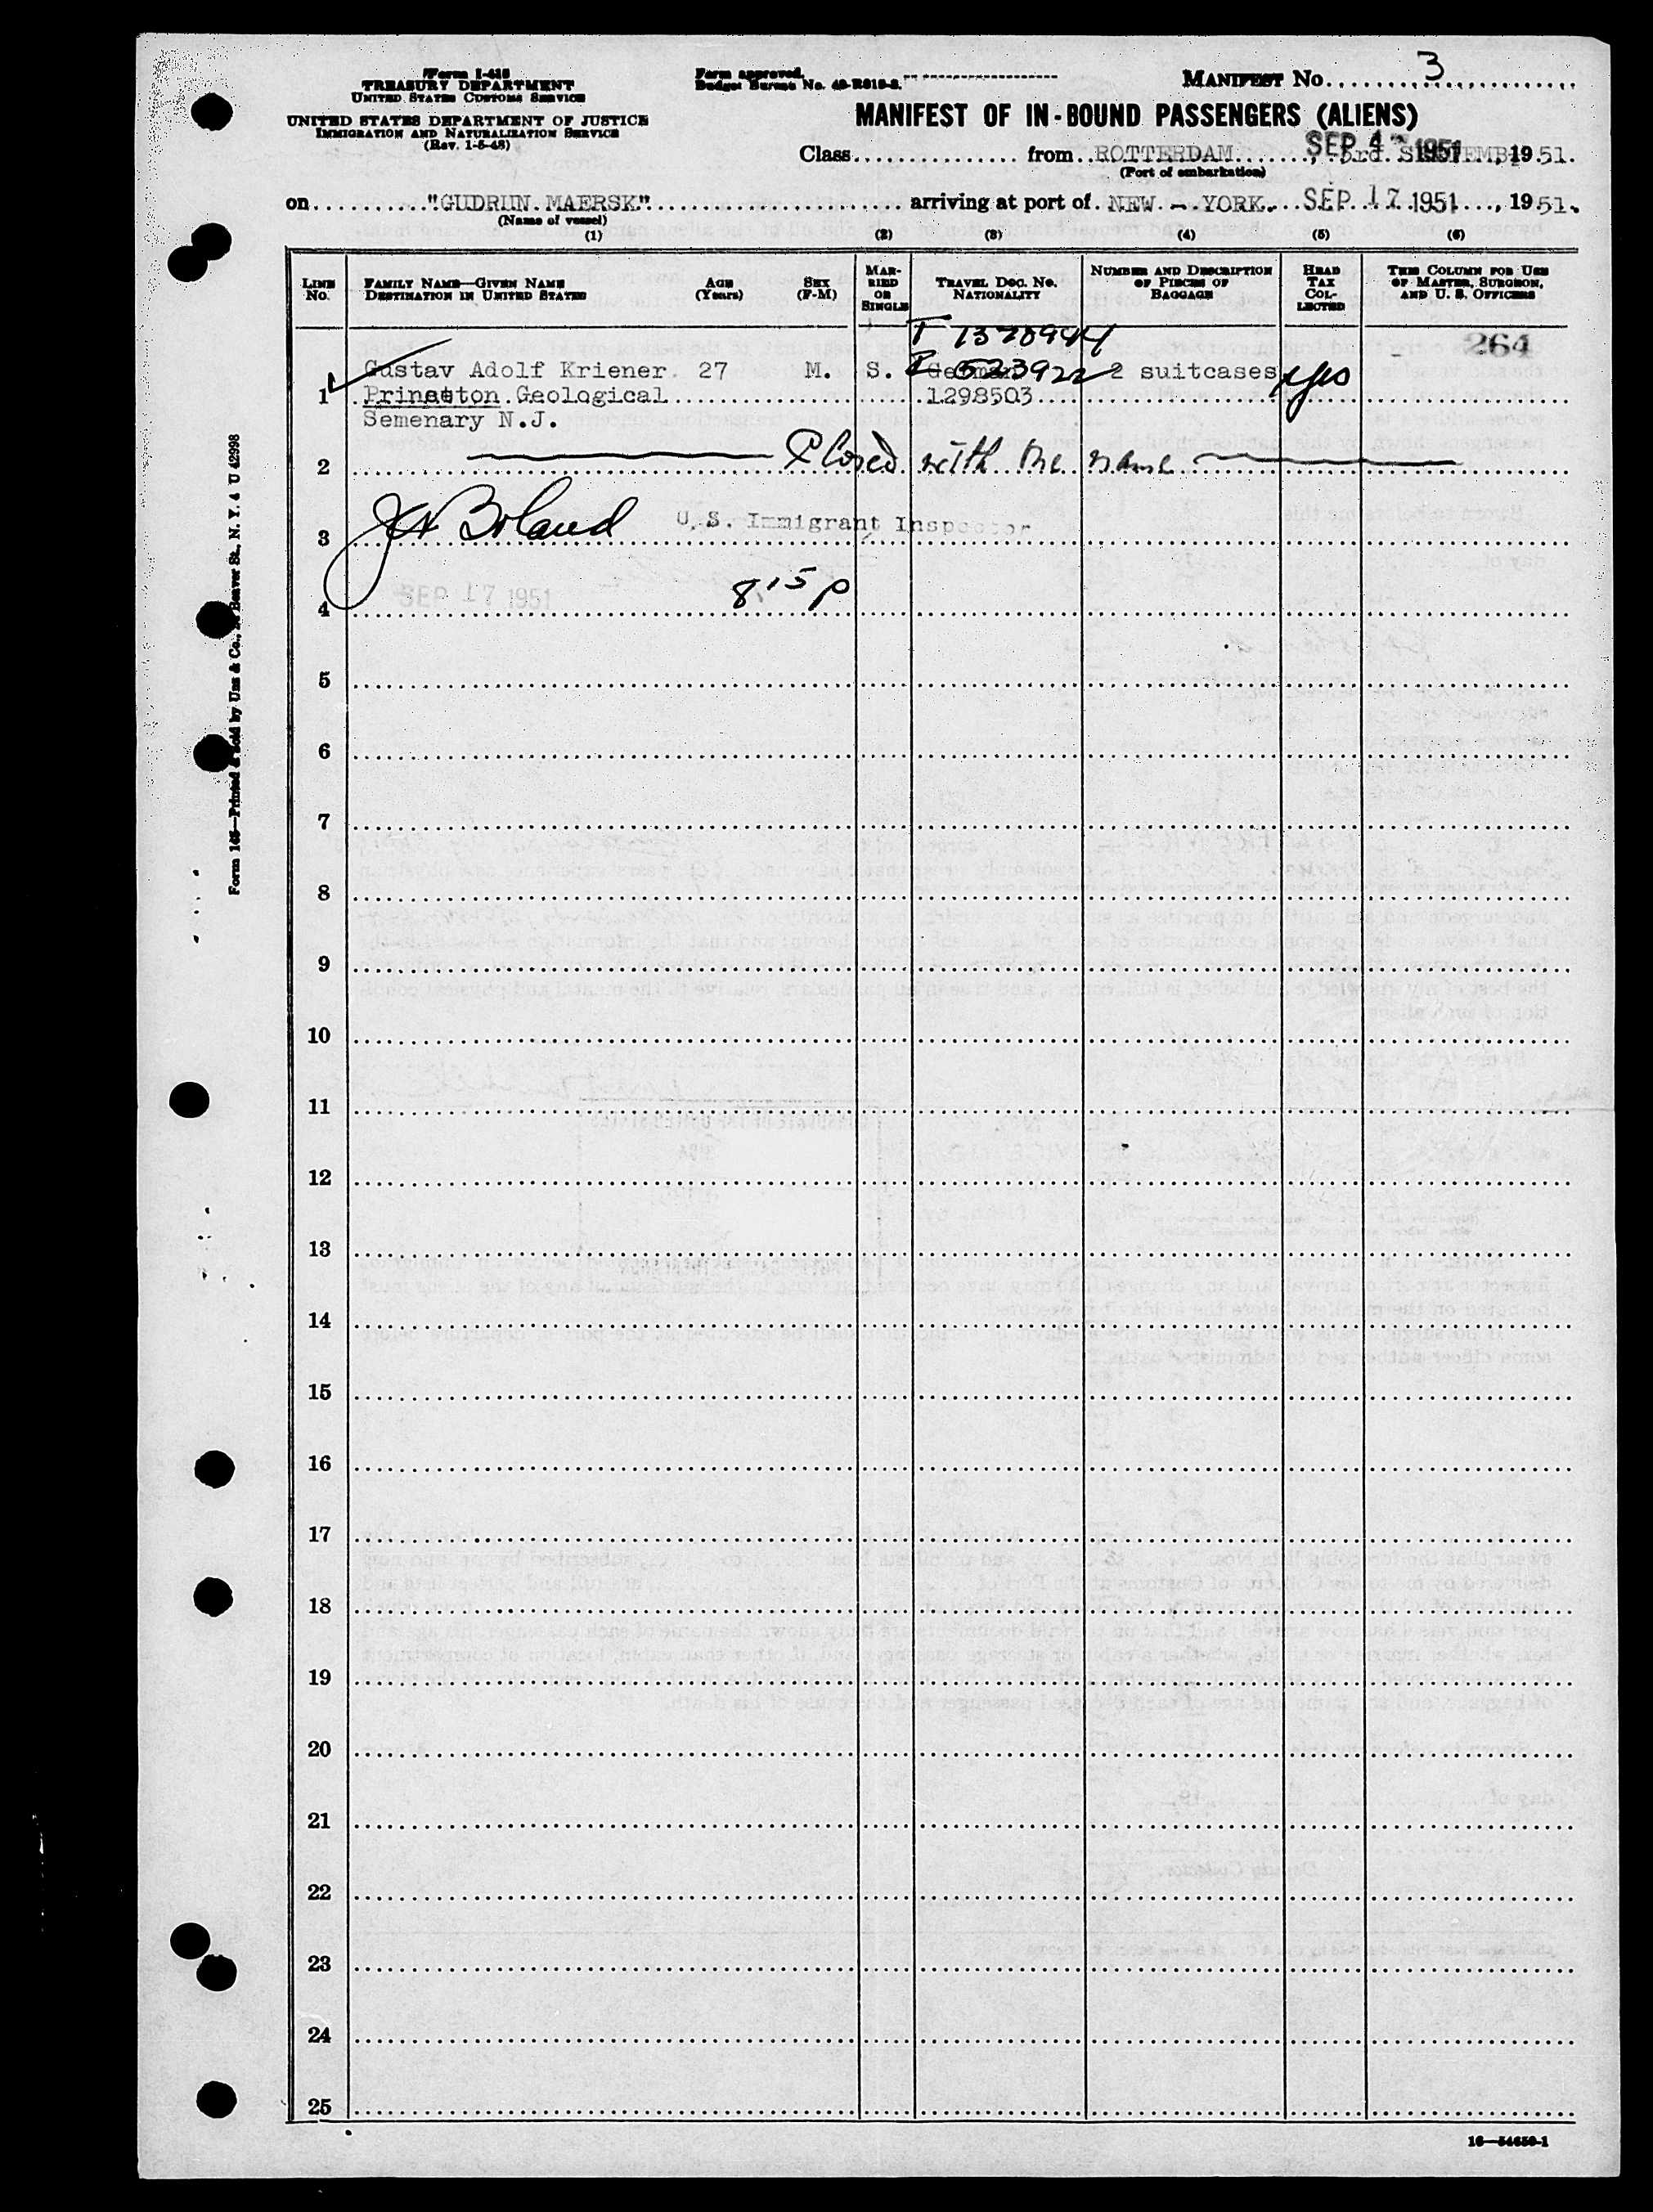 Form I-418
TREASURY DEPARTMENT
UNITED STATES CUSTOMS SERVICE
UNITED STATES DEPARTMENT OF JUSTICE
IMMIGRATION AND NATURALIZATION SERVICE
(Rev. 1-5-48)
Form approved.
Budget Bureau No. 43-R018-2.
MANIFEST No. 3
MANIFEST OF IN-BOUND PASSENGERS (ALIENS)
Class from ROTTERDAM, SEP 4 1951 3rd. SEPTEMB, 1951.
(Port of embarkation)
on "GUDRUN MAERSK" arriving at port of NEW - YORK. SEP 17 1951, 1951.
(Name of vessel)
(1) (2) (3) (4) (5) (6)
LINE No. FAMILY NAME—GIVEN NAME DESTINATION IN UNITED STATES AGE (Years) SEX (F-M) MARRIED OR SINGLE TRAVEL DOC. NO. NATIONALITY NUMBER AND DESCRIPTION OF PIECES OF BAGGAGE HEAD TAX COLLECTED THIS COLUMN FOR USE OF MASTER, SURGEON, AND U. S. OFFICERS
T 1370944 264
Gustav Adolf Kriener. 27 M. S. German 523922 2 suitcases yes
1 Princeton Geological 1298503
Semenary N.J.
2 Closed with one name
3 U.S. Immigrant Inspector
J A Boland
4 SEP 17 1951 8 15 p
5
6
7
8
9
10
11
12
13
14
15
16
17
18
19
20
21
22
23
24
25
16—54650-1